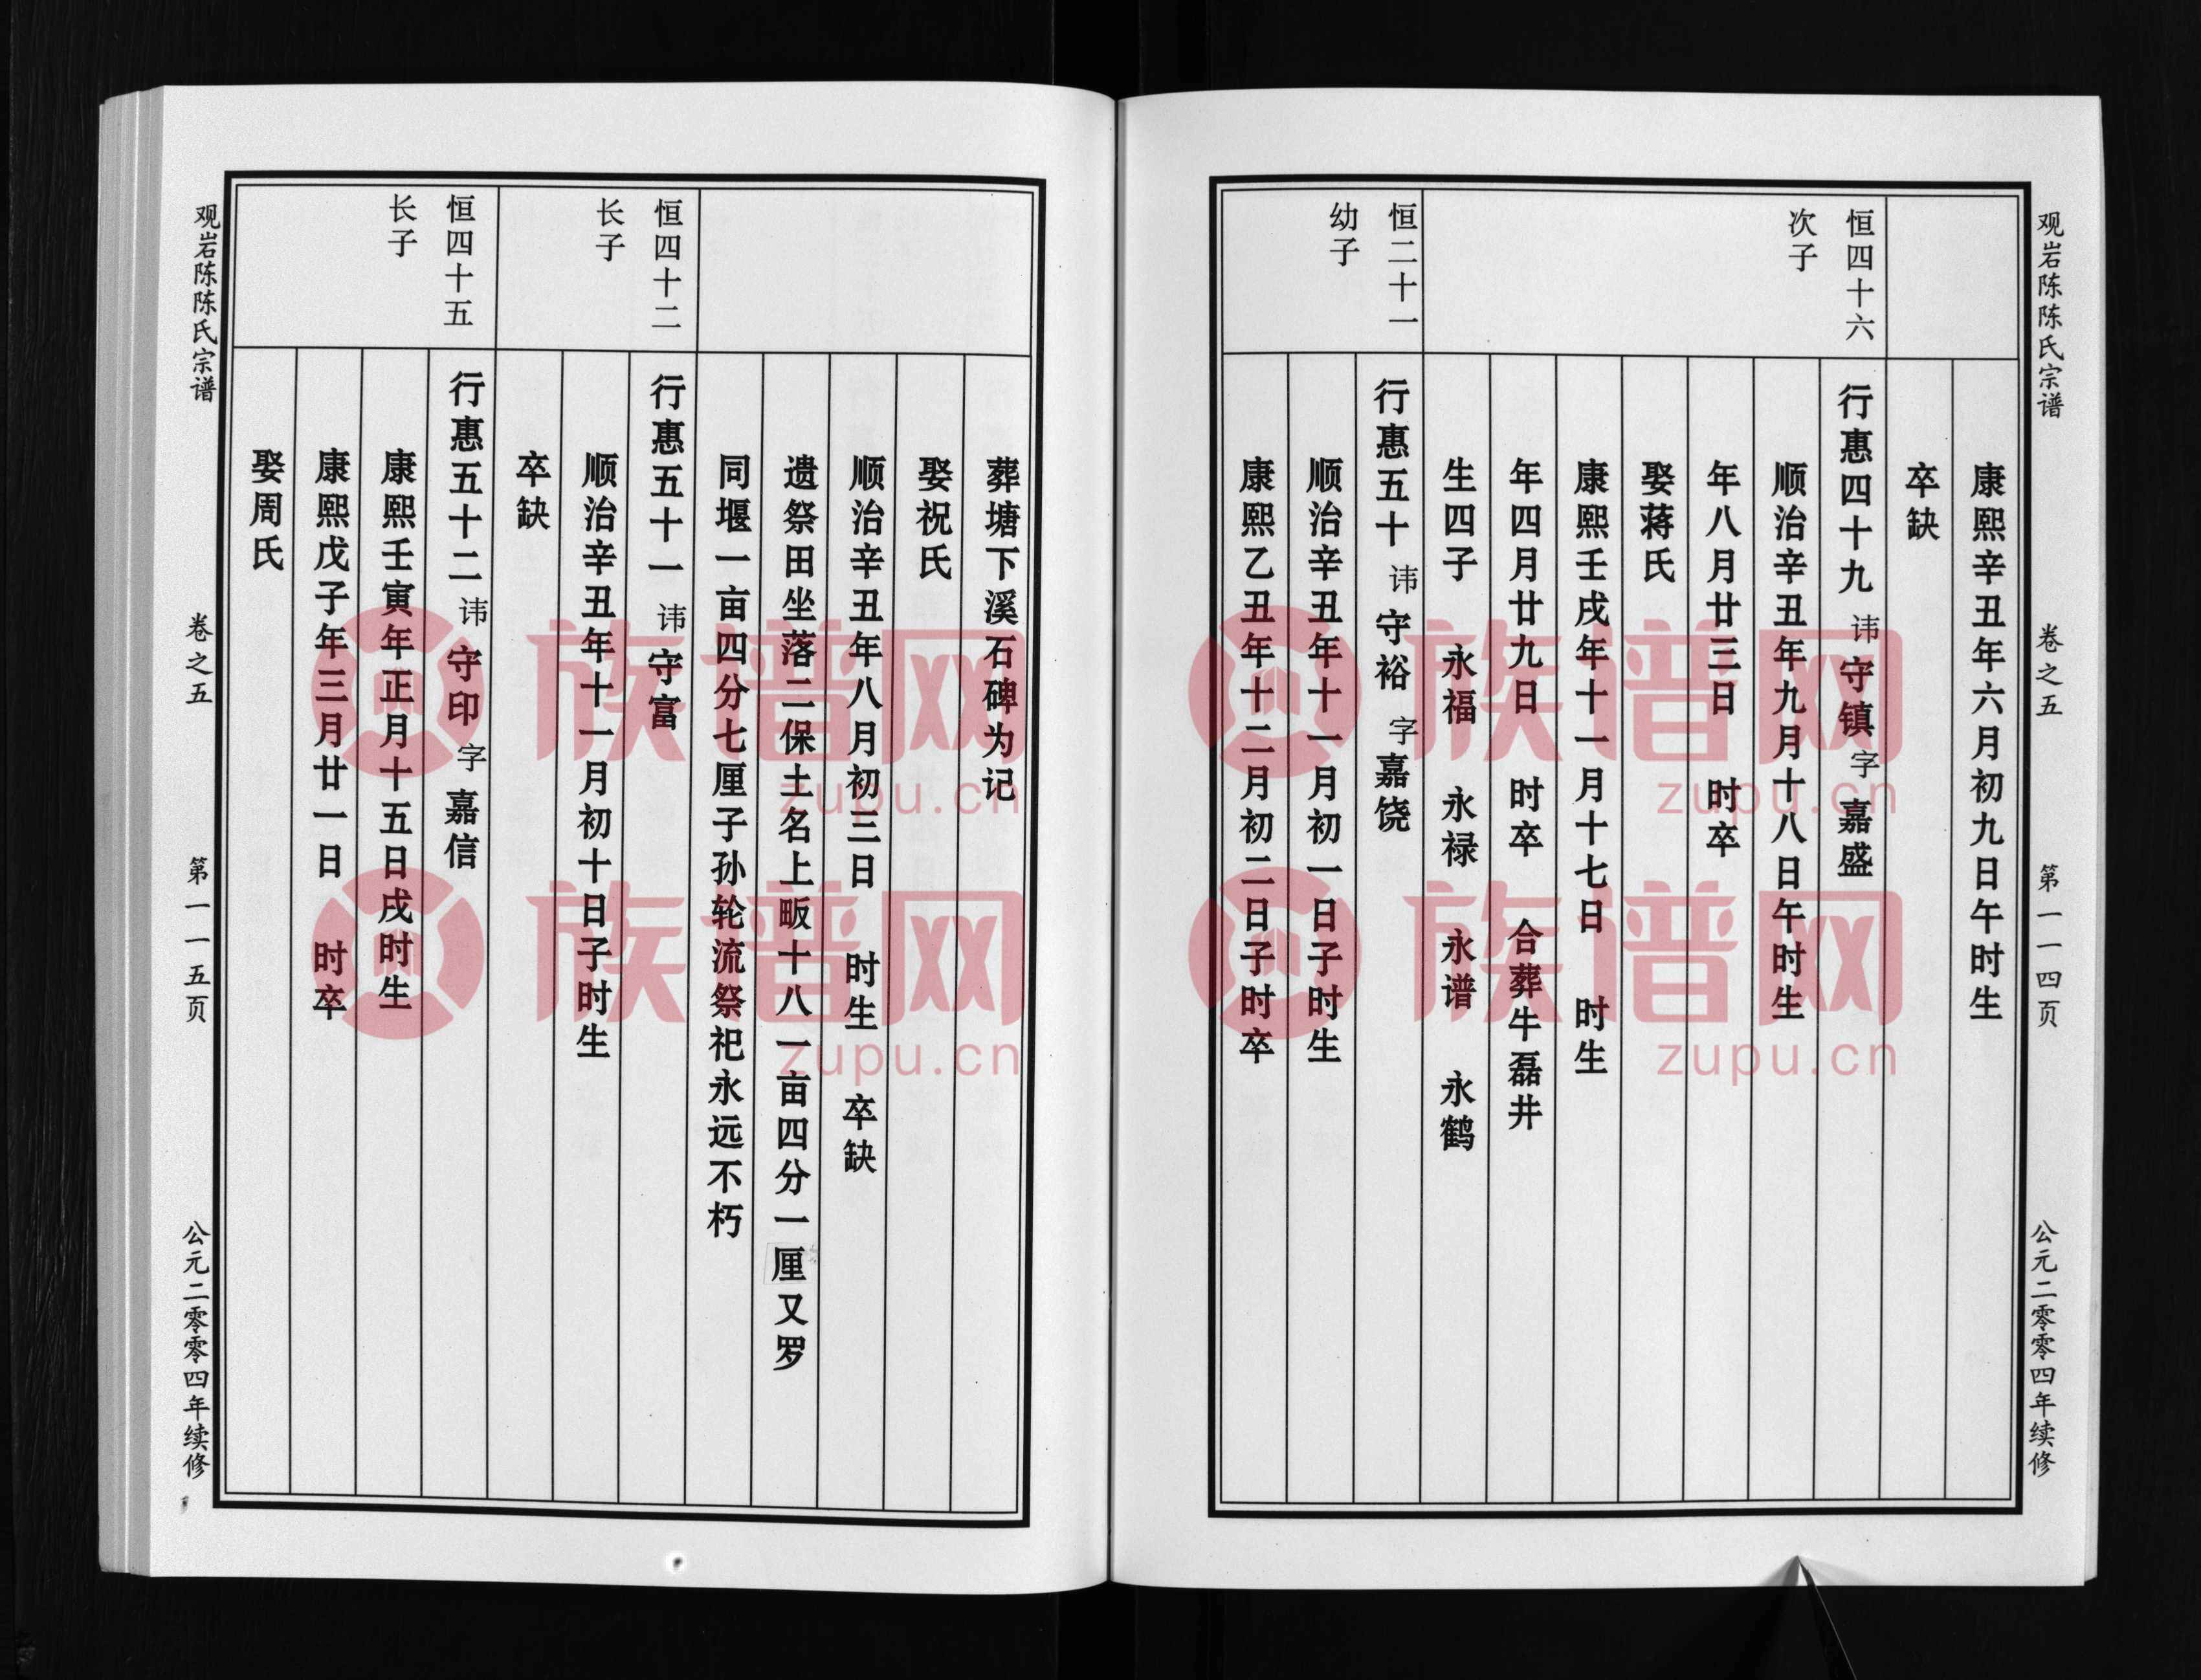 观岩陈陈氏宗谱
卷之五
第一一四页
公元二零零四年续修
康熙辛丑年六月初九日午时生
卒缺
恒四十六
次子
行惠四十九 讳 守镇 字 嘉盛
顺治辛丑年九月十八日午时生
年八月廿三日 时卒
娶蒋氏
康熙壬戌年十一月十七日 时生
年四月廿九日 时卒 合葬牛磊井
生四子 永福 永禄 永谱 永鹤
恒二十一
幼子
行惠五十 讳 守裕 字 嘉饶
顺治辛丑年十一月初一日子时生
康熙乙丑年十二月初二日子时卒
葬塘下溪石碑为记
娶祝氏
顺治辛丑年八月初三日 时生 卒缺
遗祭田坐落二保土名上畈十八一亩四分一厘又罗
同堰一亩四分七厘子孙轮流祭祀永远不朽
恒四十二
长子
行惠五十一 讳 守富
顺治辛丑年十一月初十日子时生
卒缺
恒四十五
长子
行惠五十二 讳 守印 字 嘉信
康熙壬寅年正月十五日戌时生
康熙戊子年三月廿一日 时卒
娶周氏
观岩陈陈氏宗谱
卷之五
第一一五页
公元二零零四年续修
族谱网
zupu.cn
族谱网
zupu.cn
族谱网
zupu.cn
族谱网
zupu.cn